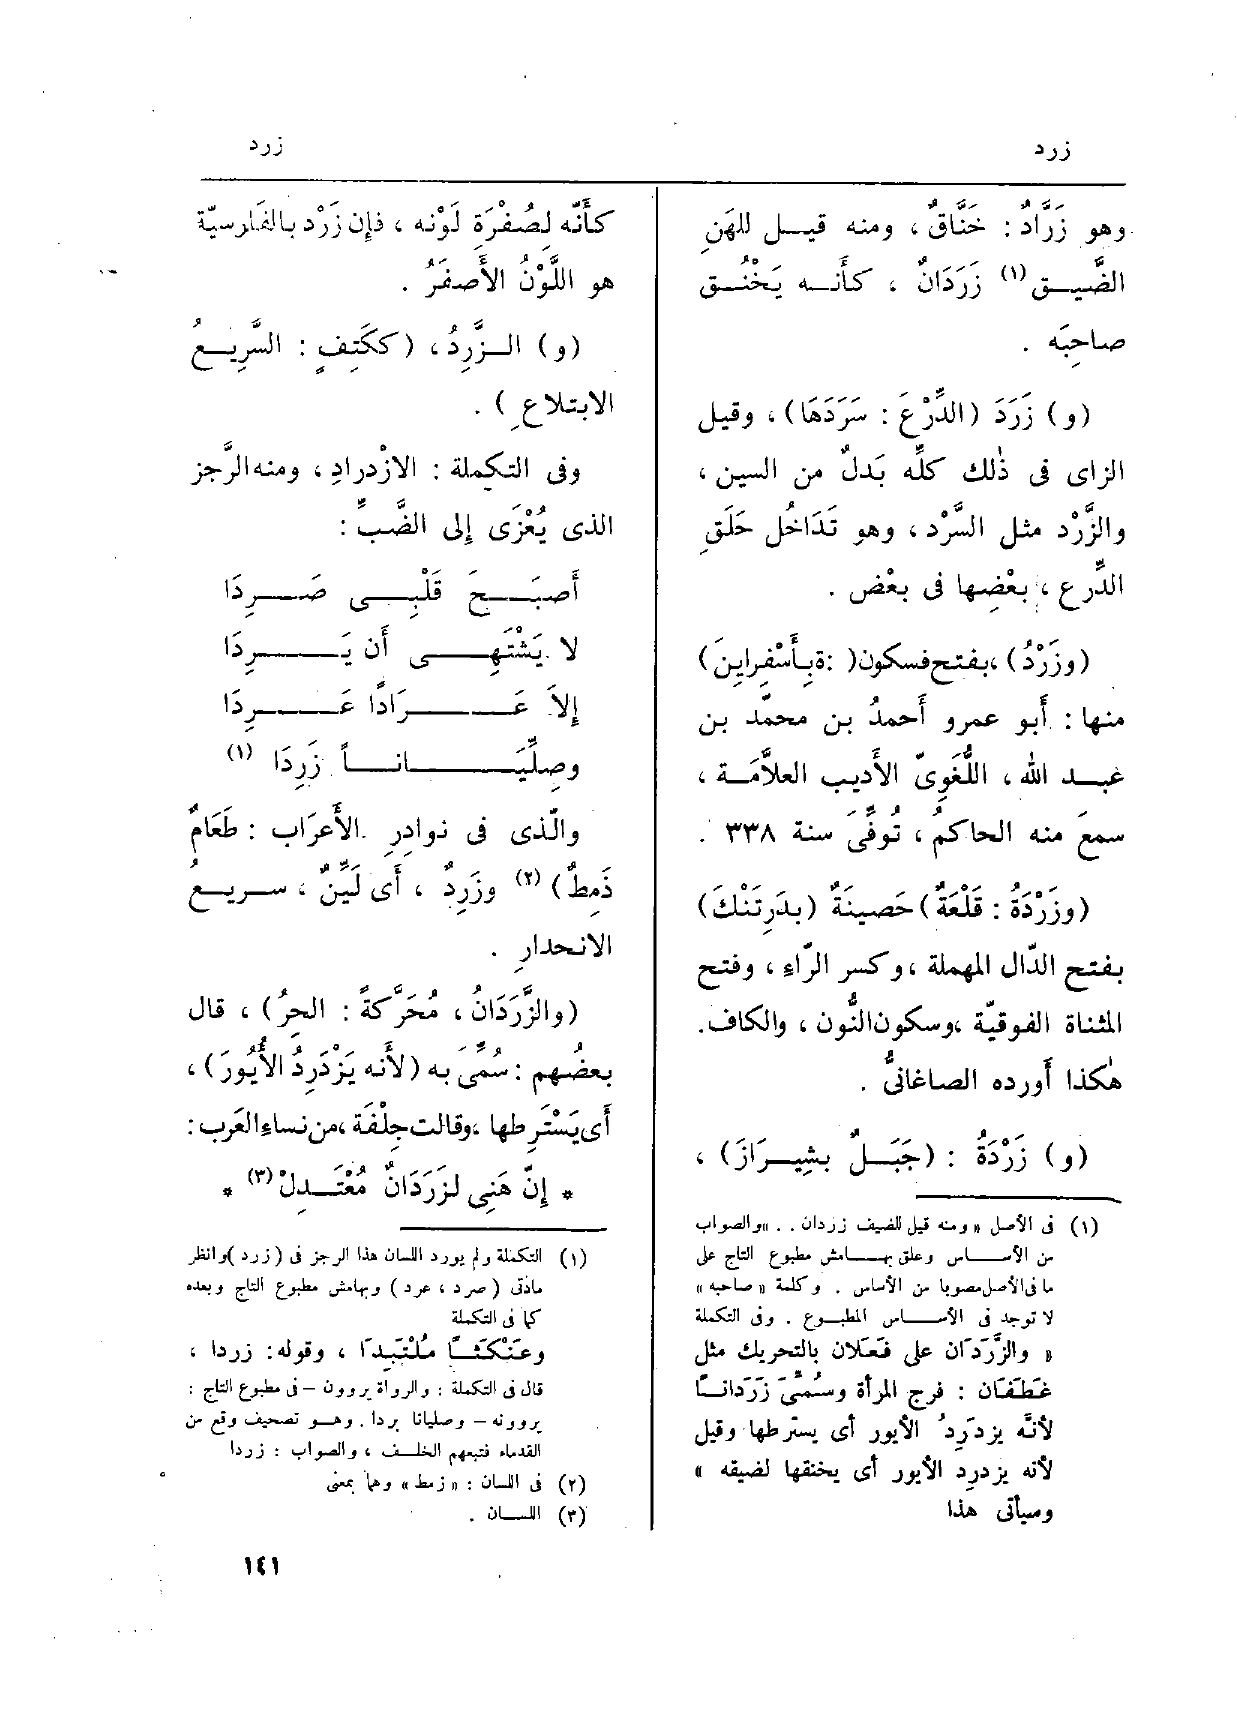 زرد
زرد
وهو زَرَّادٌ : خَنَّاقٌ ، ومنه قيـل للهَنِ
الضَّيِّـق(١) زَرَدَانٌ ، كأَنـه يَخْنُـق
صاحِبَه .
(و) زَرَدَ (الدِّرْعَ : سَرَدَهَا) ، وقيل
الزاى فى ذٰلك كلِّه بَدلٌ من السين ،
والزَّرْد مثل السَّرْد ، وهو تَدَاخُل حَلَقِ
الدِّرع ، بعْضِها فى بعْض .
(وزَرْدُ) ، بفتح فسكون( :ة بِأَسْفَرايِنَ)
منها : أَبو عمرو أَحمدُ بن محمّد بن
عبـد الله ، اللُّغَوِىّ الأَديب العلاَّمَـة ،
سمعَ منه الحاكمُ ، تُوفِّىَ سنة ٣٣٨ .
(وزَرْدَةُ : قَلْعَةٌ) حَصينَةٌ (بدَرِتَنْكَ)
بفتح الدّال المهملة ، وكسر الرّاء ، وفتح
المثناة الفوقيّة ، وسكون النُّون ، والكاف.
هٰكذا أَورده الصاغانىُّ .
(و) زَرْدَةُ : (جَبَـلٌ بشِيـرَازَ) ،
(١) فى الأصل « ومنه قيل للضيف زردان . . » والصواب
من الأسـاس وعلق بهـامش مطبوع التاج على
ما فى الأصل مصوبا من الأساس . وكلمة « صاحبه »
لا توجد فى الأسـاس المطبـوع . وفى التكملة
« والزَّرَدَان على فَعَلان بالتحريك مثل
غَطَفَان : فرج المرأة وسُمِّىَ زَرَدَاناً
لأنَّه يزدَرِدُ الأيور أى يسترطها وقيل
لأنه يزدرد الأيور أى يخنقها لضيقه »
وسيأتى هذا
كأَنَّه لصُفْرَة لَوْنه ، فإِن زَرْد بالفَارسيّة
هو اللَّوْنُ الأَصفَرُ .
(و) الـزَّرِدُ ، (ككَتِفٍ : السَّرِيـعُ
الابتلاعِ ) .
وفى التكملة : الازْدرادِ ، ومنه الرَّجز
الذى يُعْزَى إلى الضَّبِّ :
أَصبَـحَ قَلْبِـى صَـرِدَا
لا يَشْتَهِـى أَن يَـرِدَا
إِلاَّ عَـرَادًا عَـرِدَا
وصِلِّيَـانـاً زَرِدَا (١)
والّذى فى نوادرِ الأَعرَاب : طَعَامٌ
ذَمِطٌ) (٢) وزَرِدٌ ، أَى لَيِّنٌ ، سـريـعُ
الانحدارِ .
(والزَّرَدَانُ ، مُحَرَّكَةً : الحِرُ) ، قال
بعضُهم : سُمِّىَ به (لأَنه يَزْدَرِدُ الأُيُورَ) ،
أَى يَسْتَرِطها ، وقالت جِلْفَة ، من نساءِ العَرب :
* إِنّ هَنِى لزَرَدَانٌ مُعْتَـدِلْ (٣) *
(١) التكملة ولم يورد اللسان هذا الرجز فى ( زرد ) وانظر
مادتى ( صرد ، عرد ) وبهامش مطبوع التاج وبعده
كما فى التكملة
وعَنْكَثـًا مُلْتَبِدَا ، وقوله : زردا ،
قال فى التكملة : والرواة يروون – فى مطبوع التاج :
يروونه – وصليانا بردا . وهـو تصحيف وقع من
القدماء فتبعهم الخلـف ، والصواب : زردا
(٢) فى اللسان : « زمط » وهما بمعنى
(٣) اللسـان .
١٤١